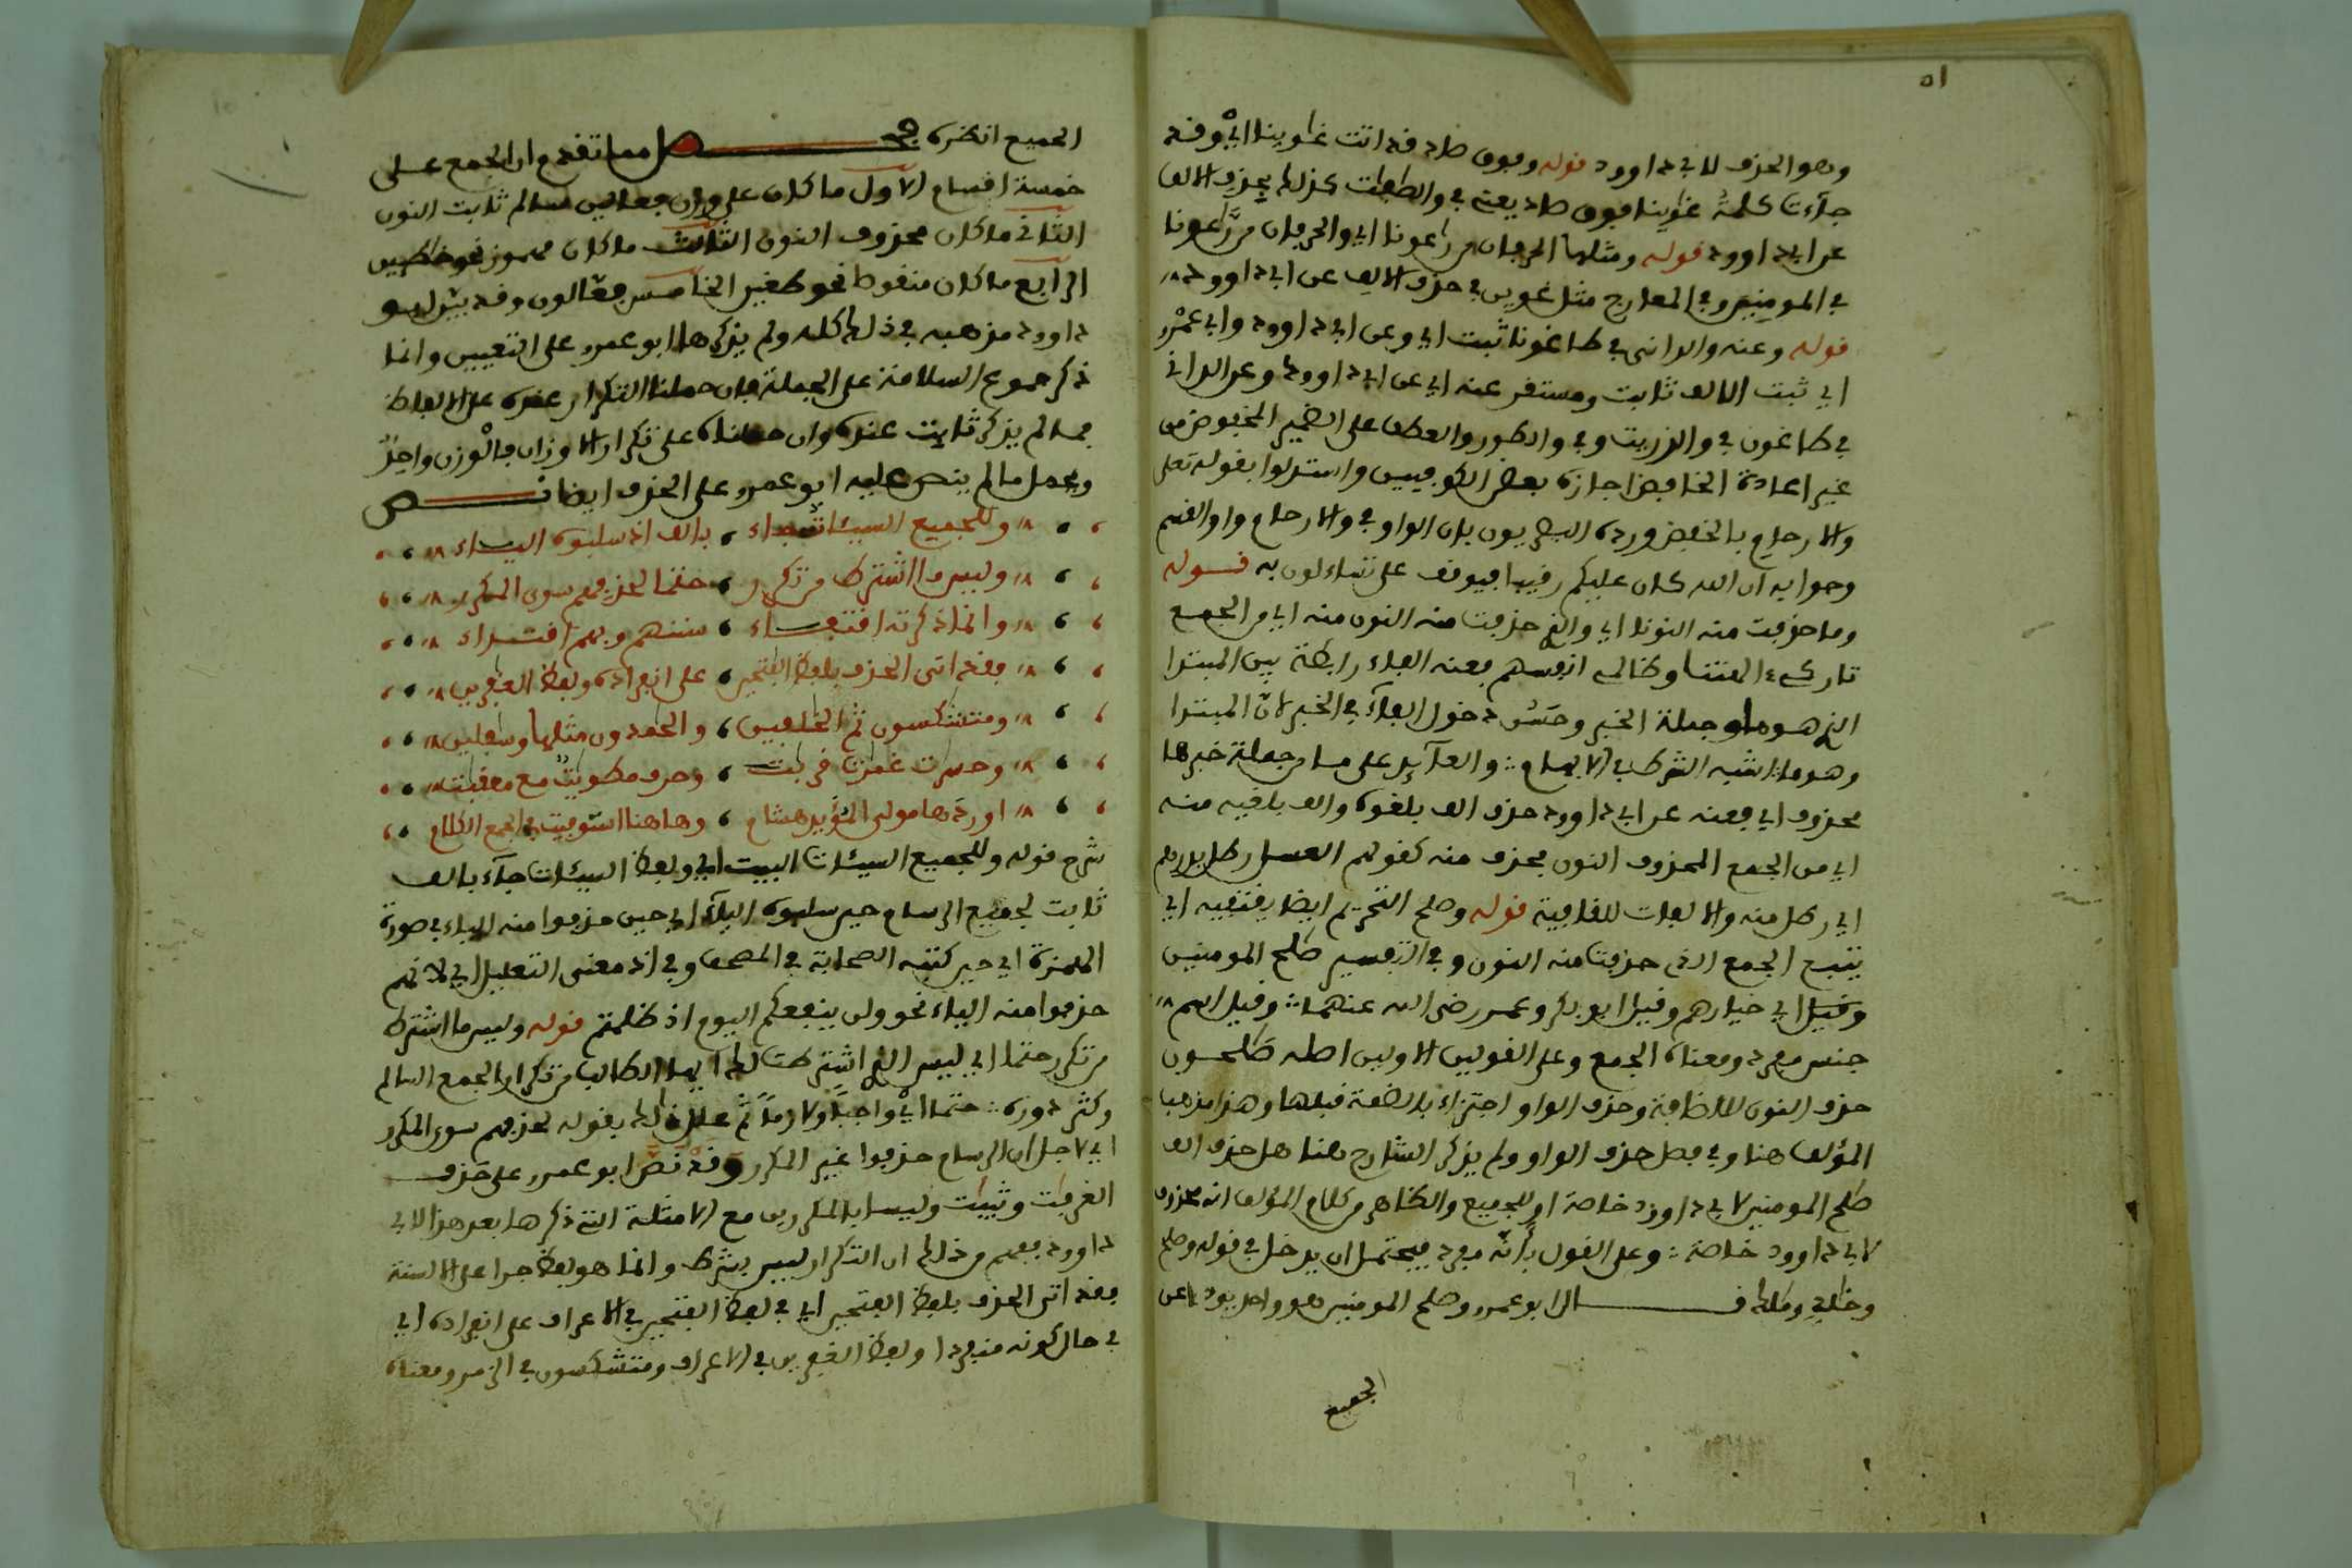 ٥١
وهو الحذف لابي داوود قوله وفوق صاد قد اتت غاوينا اي وقد
جاءت كلمة غاوينا فوق صاد يعني في والصافات كذلك بحذف الالف
عن ابي داوود قوله ومثلها الحرفان من راعونا اي والحرفان من راعونا
في المومنين وفي المعارج مثل غوين في حذف الالف عن ابي داوود
قوله وعنه والداني في طاغونا ثبت اي وعن ابي داوود وابي عمرو
اي ثبت الالف ثابت ومستقر عنه اي عن ابي داوود وعن الداني
في طاغون في والذريت وفي والطور والعطف على الضمير المخفوض من
غير اعادة الخافض اجازه بعض الكوفيين واستدلوا بقوله تعلى
والارحام بالخفض ورده البصريون بان الواو في والارحام واو القسم
وجوابه ان الله كان عليكم رقيبا فيوقف على تساءلون به قوله
وما حذفت منه النونا اي والذي حذفت منه النون منه اي من الجمع
تاركي ءالهتنا وظالمي انفسهم فعنه الفاء رابطة بين المبتدا
الذي هو ما وجملة الخبر وحسن دخول الفاء في الخبر لان المبتدا
وهو ما اشبه الشرط في الابهام والعائد على ما من جملة خبرها
محذوف اي فعنه عن ابي داوود حذف الف بلغوه والف بلقيه منه
اي من الجمع المحذوف النون فحذف منه كقولهم العسل رطل بدرهم
اي رطل منه والالفات للقافية قوله وصلح التحريم ايضا يقتفيه اي
يتبع الجمع الذي حذفت منه النون وفي التفسير صلح المومنين
وقيل اي خيارهم وقيل ابو بكر وعمر رضي الله عنهما وقيل اسم
جنس مفرد ومعناه الجمع وعلى القولين الاولين اصله صلحون
حذف النون للاضافة وحذف الواو اجتزاء بالضمة قبلها وهذا مذهب
المؤلف هنا وفي فصل حذف الواو ولم يذكر الشارح هنا هل حذف الف
صلح المومنين لابي داوود خاصة او للجميع والظاهر من كلام المؤلف انه محذوف
لابي داوود خاصة وعلى القول بانه مفرد فيحتمل ان يدخل في قوله وصلح
وخلق وملك قــال ابو عمرو وصلح المومنين هو واحد يود عن
الجميع
الجميع انظره فــصل مما تقدم ان الجمع على
خمسة اقسام الاول ما كان على وزن فعالين سالم ثابت النون
الثاني ما كان محذوف النون الثالث ما كان مهموز نحو خاطين
الرابع ما كان منقوط نحو طغين الخامس فعالون وقد بين ابو
داوود مذهبه في ذلك كله ولم يذكرها ابو عمرو على التعيين وانما
ذكر جموع السلامة على الجملة فان حملنا التكرار عنده على الالفاظ
فما لم يذكر ثابت عنده وان حملناه على تكرار الاوزان فالوزن واحد
ويحمل ما لم ينص عليه ابو عمرو على الحذف ايضا نــص
وللجميع السيئات جاء بالف اذ سلبوه الياء
وليس ما اشترط من تكرر حتما لحذفهم سوى المكرر
وانما ذكرته اقتفاء سننهم وبهم اقتداء
فقد اتى الحذف بلفظ الفتحين على انفراده ولفظ الغفرين
ومتشكسون ثم الخلفين والحمدون مثلها وسفلين
وحسرت غمرت قربت وحرف مطويت مع معقبت
اوردها مولى المؤيد هشام وهاهنا استوفيت في الجمع الكلام
شرح قوله وللجميع السيئات البيت اي ولفظ السيئات جاء بالف
ثابت لجميع الرسام حين سلبوه الياء اي حين حذفوا منه الياء في صورة
الهمزة اي حين كتبه الصحابة في المصحف وفي اذ معنى التعليل اي لانهم
حذفوا منه الياء نحو ولن ينفعكم اليوم اذ ظلمتم قوله وليس ما اشترط
من تكرر حتما اي ليس الذي اشترطت لك ايها الطالب من تكرار الجمع السالم
وكثر دوره حتما اي واجبا ولازما ثم علل ذلك بقوله لحذفهم سوى المكرر
اي لاجل ان الرسام حذفوا غير المكرر وقد نص ابو عمرو على حذف
الغرفت وثيبت وليسا بالمكررين مع الامثلة التي ذكرها بعد هذا لابي
داوود ففهم من ذلك ان التكرار ليس بشرط وانما هو لفظ جرا على السنة
فقد اتى الحذف بلفظ الفتحين اي في لفظ الفتحين في الاعراف على انفراده اي
في حال كونه منفردا ولفظ الغفرين في الاعراف ومتشكسون في الزمر ومعناه